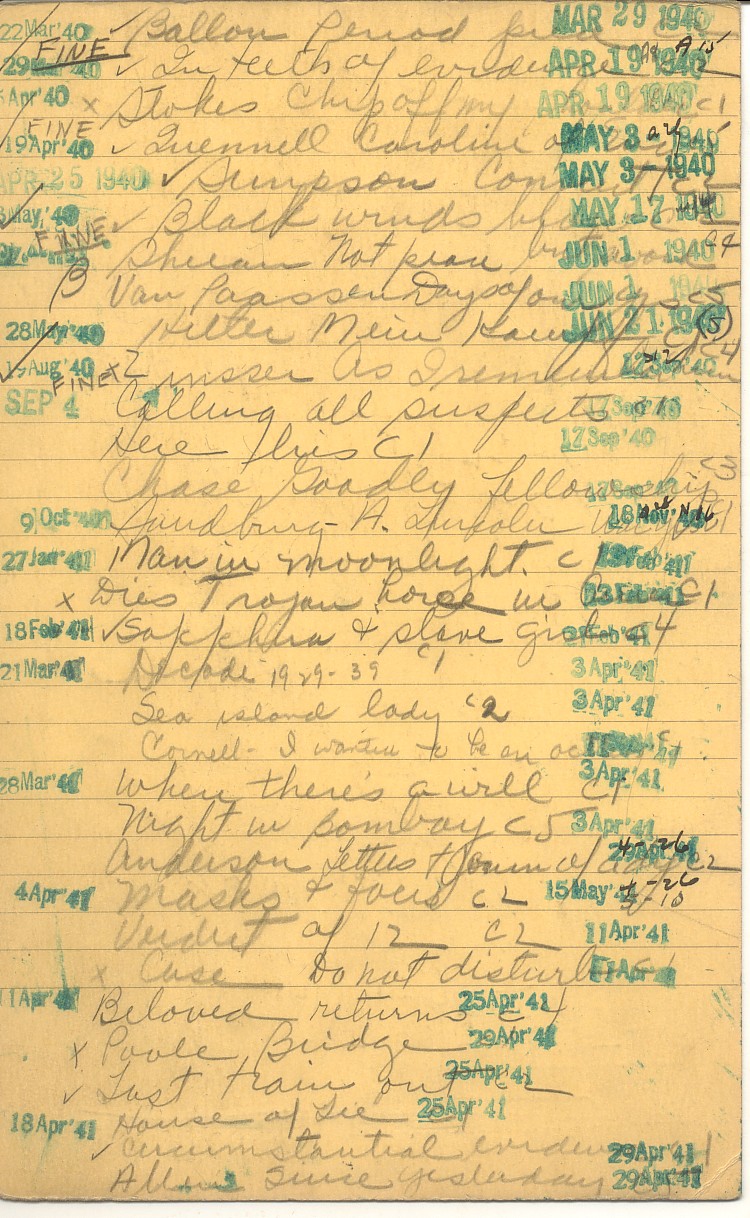 22 Mar '40 ✓ Ballou Period MAR 29 1940
FINE A 15
29 Mar '40 ✓ In teeth of evidence APR 19 1940
5 Apr '40 x Stokes Chip off my APR 19 1940 c1
FINE
19 Apr '40 ✓ Quennell Caroline of MAY 3 1940
APR 25 1940 ✓ Simpson MAY 3 - 1940
3 May '40 ✓ Black winds blow MAY 17 1940
FINE Sheean Not peace but JUN 1 1940
Van Paassen Days of our JUN 1 1940 c5
28 May '40 Hitler Mein Kampf JUN 21 1940 (5)
19 Aug '40 FINE x2 As I remember 12 Sep '40
SEP 4 Calling all suspects c1 17 Sep '40
Here This c1 17 Sep '40
Chase Goodly fellowship c3 17 Sep '40
9 Oct '40 Sandburg - A. Lincoln 18 Nov '40
27 Jan '41 Man in moonlight. c Feb '41
x Dies Trojan horse in Feb '41 c1
18 Feb '41 ✓ Sapphira & slave girl c4 Feb '41
21 Mar '41 Decade 1929-39 c1 3 Apr '41
Sea island lady c2 3 Apr '41
Cornell - I wanted to be an actress
28 Mar '41 When there's a will c1 3 Apr '41
Night in Bombay c5 3 Apr '41
Anderson Letters 29 Apr '41 4-26 c2
4 Apr '41 Masks & faces c2 15 May '41 4-26 5-10
Verdict of 12 c2 11 Apr '41
x Case Do not disturb 11 Apr '41
11 Apr '41 Beloved returns c4 25 Apr '41
x Poole Bridge 29 Apr '41
✓ Last train out c2 25 Apr '41
House of Lee 25 Apr '41
18 Apr '41 ✓ Circumstantial evidence 29 Apr '41
Allen Since yesterday 29 Apr '41